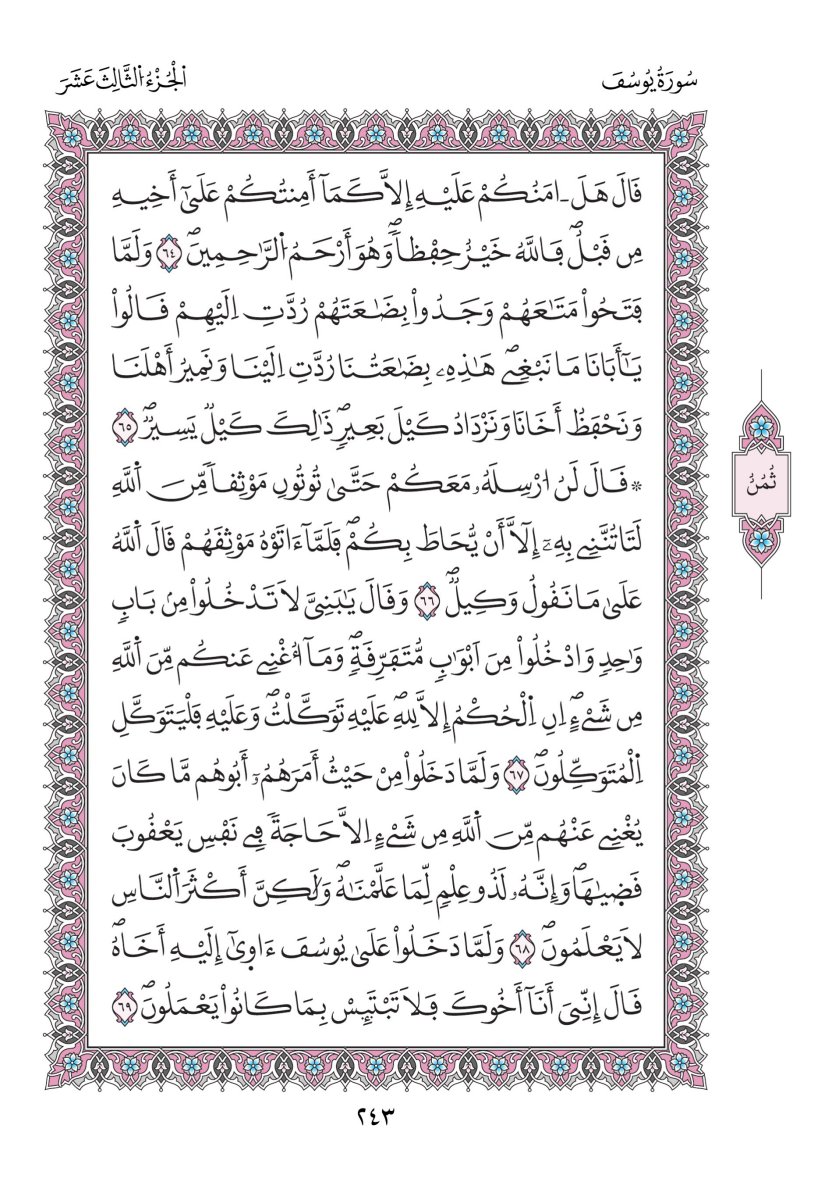 سُورَةُ يُوسُفَ
اَ۬لْجُزْءُ اُ۬لثَّالِثَ عَشَرَ
قَالَ هَلَ ـ امَنُكُمْ عَلَيْهِ إِلَّا كَمَآ أَمِنتُكُمْ عَلَىٰٓ أَخِيهِ
مِن قَبْلُۖ فَاللَّهُ خَيْرٌ حِفْظاٗۖ وَهُوَ أَرْحَمُ اُ۬لرَّٰحِمِينَۖ ٦٤ وَلَمَّا
فَتَحُواْ مَتَٰعَهُمْ وَجَدُواْ بِضَٰعَتَهُمْ رُدَّتِ اِلَيْهِمْ قَالُواْ
يَٰٓأَبَانَا مَا نَبْغِےۖ هَٰذِهِۦ بِضَٰعَتُنَا رُدَّتِ اِلَيْنَا وَنَمِيرُ أَهْلَنَا
وَنَحْفَظُ أَخَانَا وَنَزْدَادُ كَيْلَ بَعِيرٖۖ ذَٰلِكَ كَيْلٞ يَسِيرٞۖ ٦٥
* قَالَ لَنُ ا۟رْسِلَهُۥ مَعَكُمْ حَتَّىٰ تُوتُونِ مَوْثِقاٗ مِّنَ اَ۬للَّهِ
لَتَاتُنَّنِے بِهِۦٓ إِلَّآ أَنْ يُّحَاطَ بِكُمْۖ فَلَمَّآ ءَاتَوْهُ مَوْثِقَهُمْ قَالَ اَ۬للَّهُ
عَلَىٰ مَا نَقُولُ وَكِيلٞۖ ٦٦ وَقَالَ يَٰبَنِيَّ لَا تَدْخُلُواْ مِنۢ بَابٖ
وَٰحِدٖ وَادْخُلُواْ مِنَ اَبْوَٰبٖ مُّتَفَرِّقَةٖۖ وَمَآ أُغْنِے عَنكُم مِّنَ اَ۬للَّهِ
مِن شَےْءٍۖ اِنِ اِ۬لْحُكْمُ إِلَّا لِلهِۖ عَلَيْهِ تَوَكَّلْتُۖ وَعَلَيْهِ فَلْيَتَوَكَّلِ
اِ۬لْمُتَوَكِّلُونَۖ ٦٧ وَلَمَّا دَخَلُواْ مِنْ حَيْثُ أَمَرَهُمُۥٓ أَبُوهُم مَّا كَانَ
يُغْنِے عَنْهُم مِّنَ اَ۬للَّهِ مِن شَےْءٍ اِلَّا حَاجَةٗ فِے نَفْسِ يَعْقُوبَ
قَضَىٰهَاۖ وَإِنَّهُۥ لَذُو عِلْمٖ لِّمَا عَلَّمْنَٰهُۖ وَلَٰكِنَّ أَكْثَرَ اَ۬لنَّاسِ
لَا يَعْلَمُونَۖ ٦٨ وَلَمَّا دَخَلُواْ عَلَىٰ يُوسُفَ ءَاو۪يٰٓ إِلَيْهِ أَخَاهُۖ
قَالَ إِنِّيَ أَنَآ أَخُوكَ فَلَا تَبْتَئِسْ بِمَا كَانُواْ يَعْمَلُونَۖ ٦٩
ثُمُنُ
٢٤٣